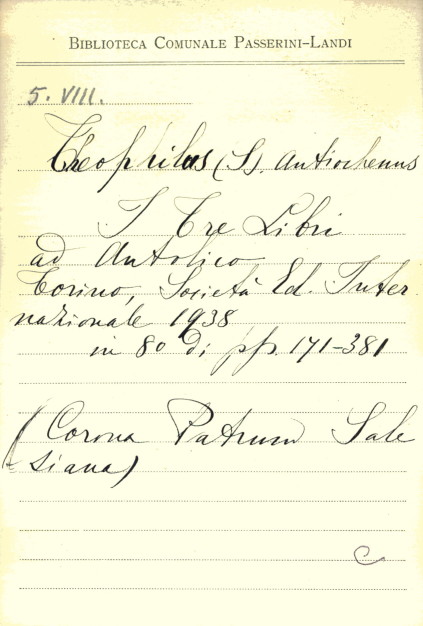 BIBLIOTECA COMUNALE PASSERINI-LANDI
5. VIII.
Theophilus (S). Antiochenus
I Tre Libri
ad Autolico
Torino, Società Ed. Inter
nazionale 1938
in 8º di pp. 171-381
(Corona Patrum Sale
siana)
C